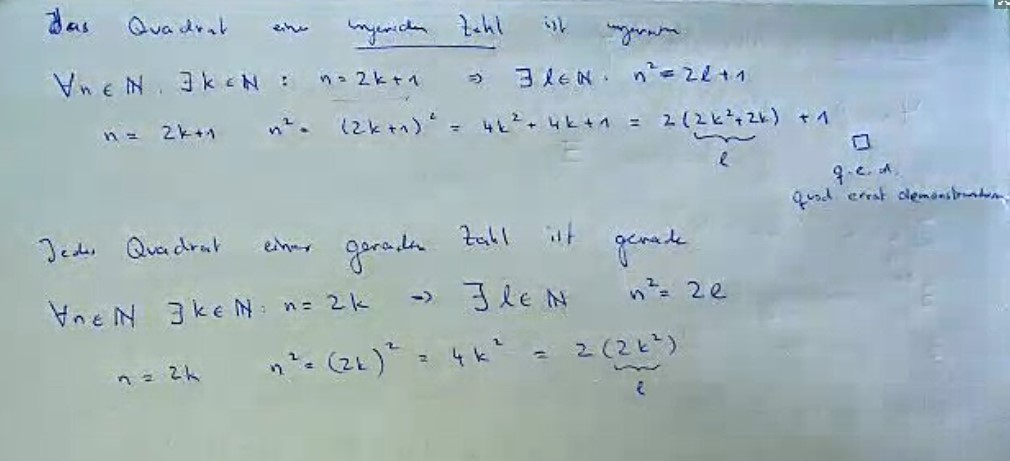 Das Quadrat einer ungeraden Zahl ist ungerade
∀n ∈ ℕ . ∃ k ∈ ℕ : n = 2k+1 ⇒ ∃ l ∈ ℕ . n² = 2l+1
n = 2k+1 n² = (2k+1)² = 4k² + 4k + 1 = 2(2k²+2k) + 1
l
□
q.e.d.
quod errat demonstrandum
Jedes Quadrat einer geraden Zahl ist gerade
∀n ∈ ℕ ∃ k ∈ ℕ : n = 2k ⇒ ∃ l ∈ ℕ n² = 2l
n = 2k n² = (2k)² = 4k² = 2(2k²)
l